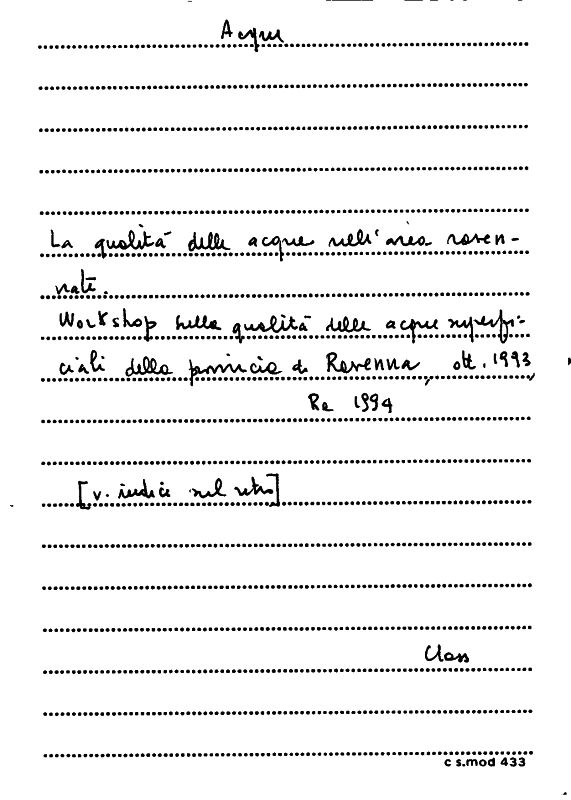 Acque
La qualità delle acque nell'area raven-
nate.
Workshop sulla qualità delle acque superfi-
ciali della provincia di Ravenna, ott. 1993,
Ra 1994
[v. indici nel retro]
Class
c s.mod 433